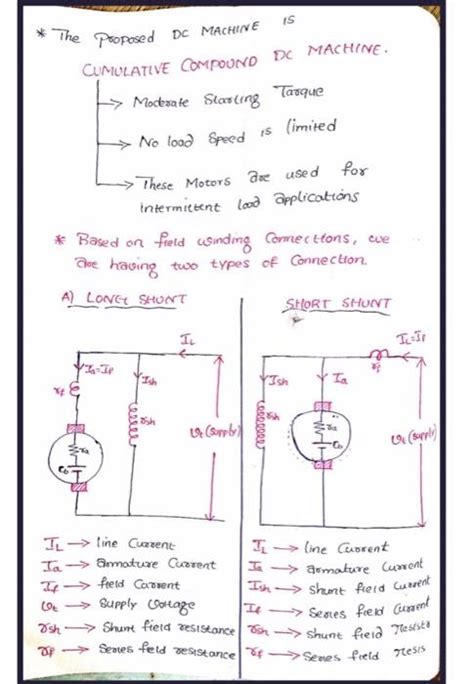 * The Proposed DC MACHINE is
CUMULATIVE COMPOUND DC MACHINE.
→ Moderate Starting Tarque
→ No load Speed is limited
→ These Motors are used for
intermittent load applications
* Based on field winding Connections, we
are having two types of Connection.
A) LONG SHUNT
IL
Ia=If
Ish
rf
rsh
ra
eb
Vt (supply)
IL → line Current
Ia → armature Current
If → field Current
Vt → Supply Voltage
rsh → Shunt field resistance
rf → Series field resistance
SHORT SHUNT
IL=If
rf
Ish
Ia
rsh
ra
eb
Vt (supply)
IL → line Current
Ia → armature Current
Ish → Shunt field Current
If → Series field Current
rsh → shunt field
rf → Series field